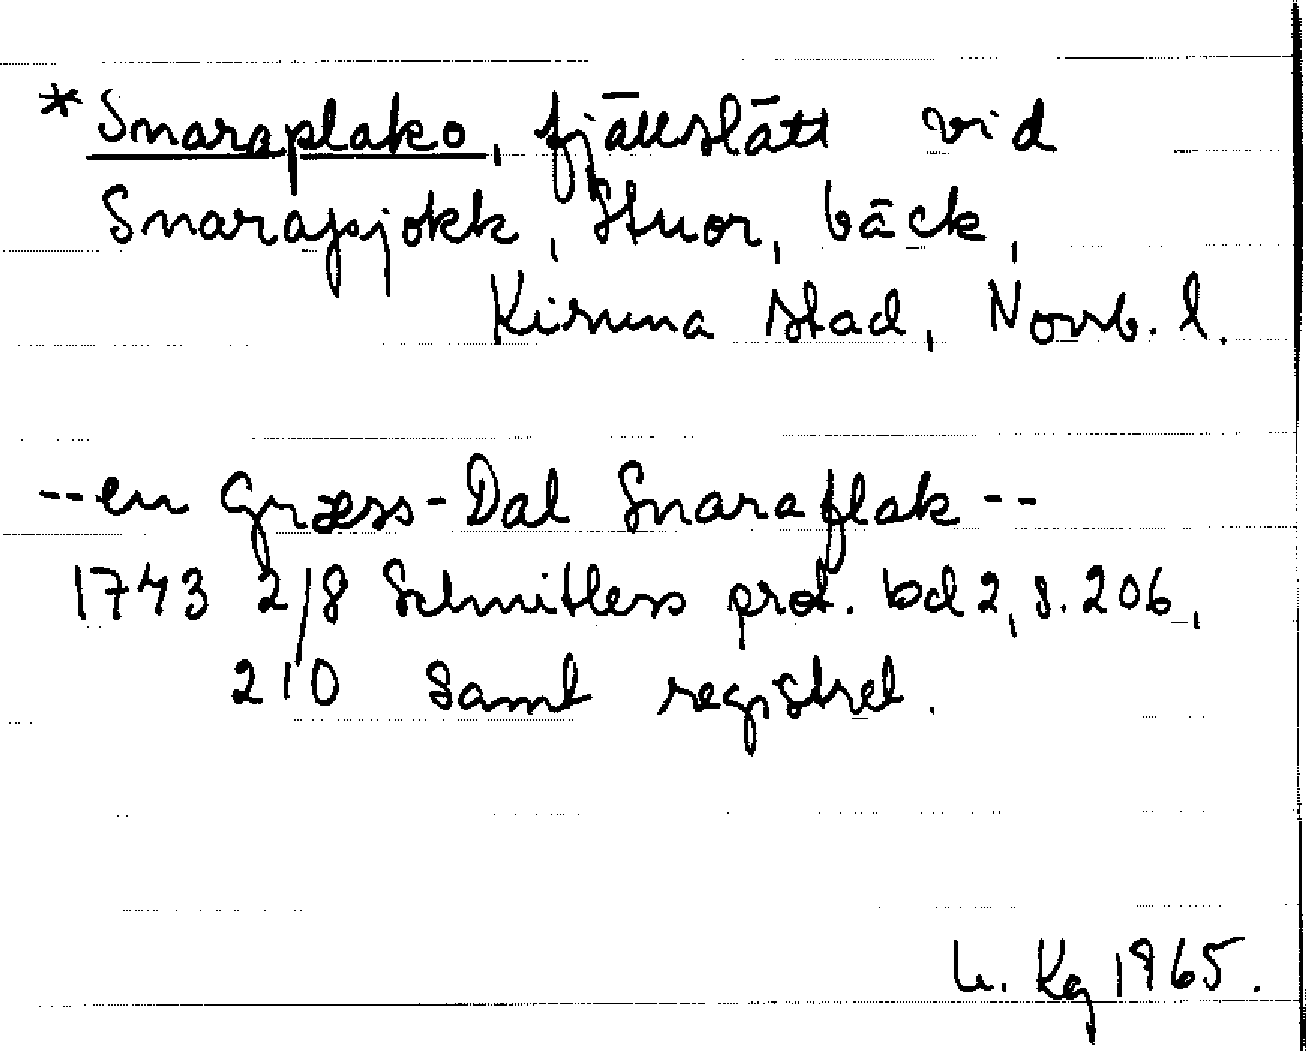 *Snaraplako, fjällslätt vid
Snarapsjokk, Stuor, bäck,
Kiruna stad, Norrb. l.
--en Græss-Dal Snaraflak--
1743 2/8 Schnitlers prot. bd 2, s. 206,
210 samt registret.
U. Kg 1965.